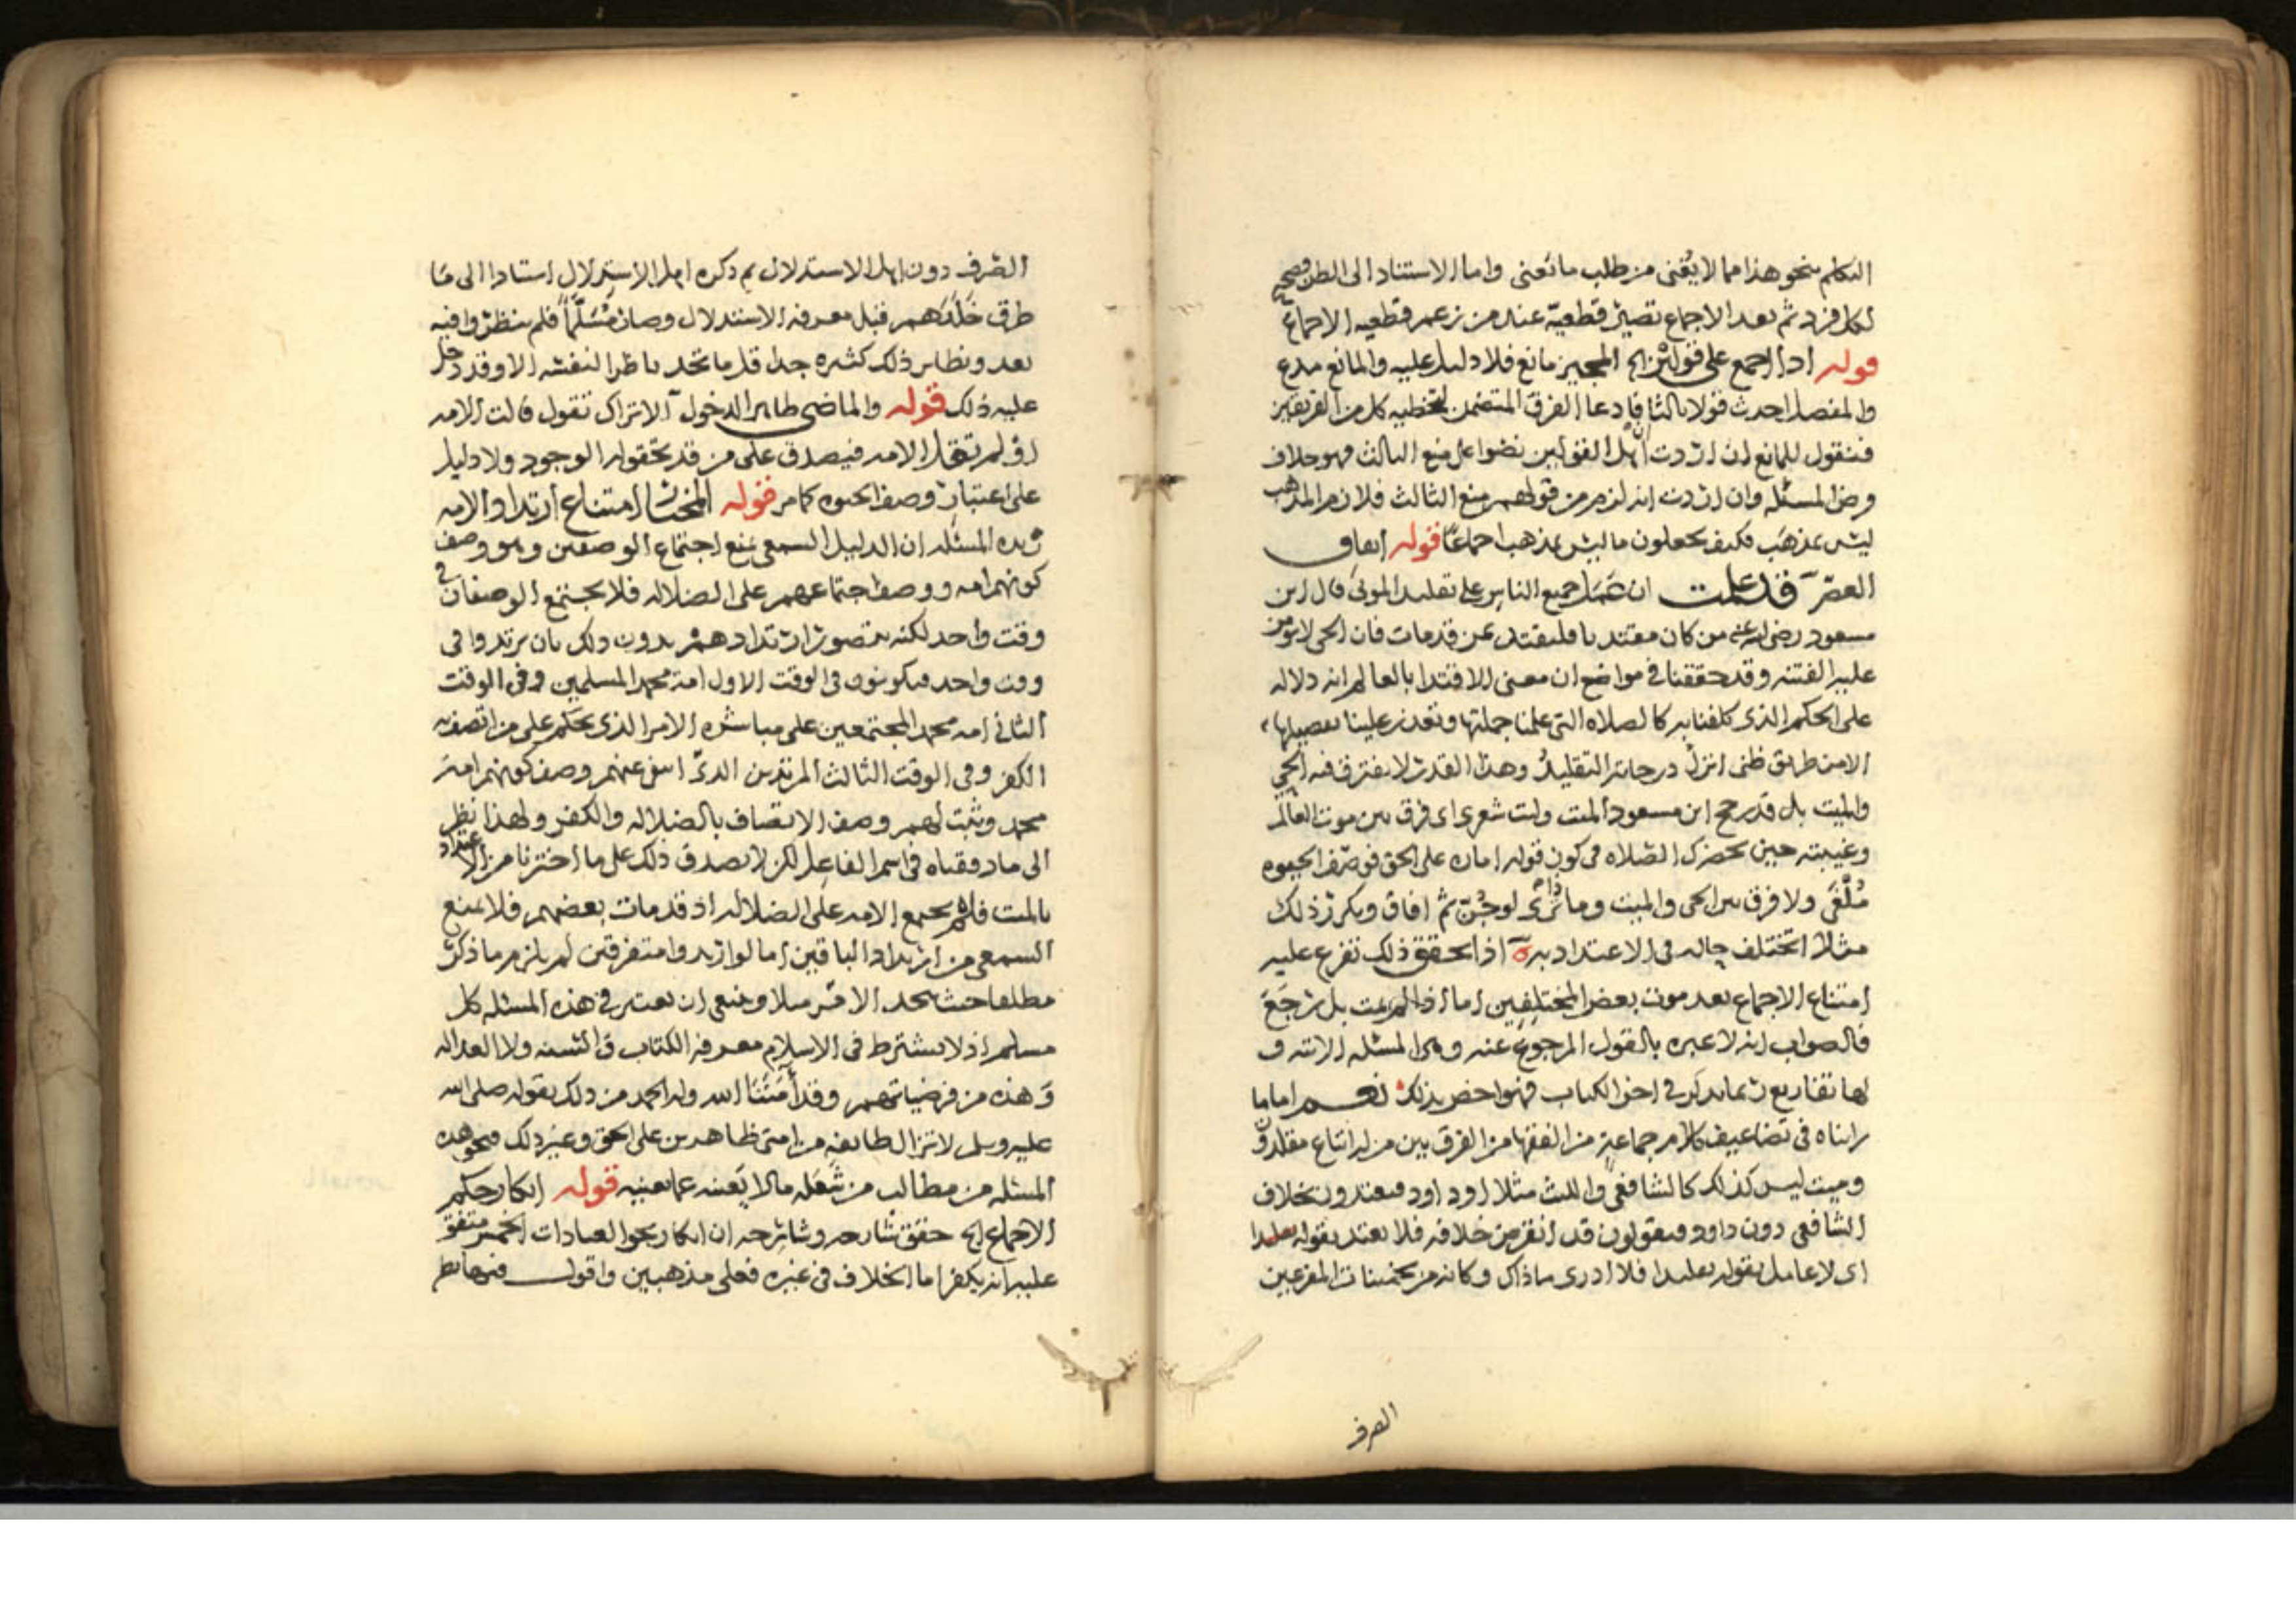 التكلم بنحو هذا مما لا يغنى من طلب ما يعنى واما الاستناد الى الظن فصحيح
لكل فرد ثم بعد الاجماع تصير قطعية عند من زعم قطعيه الاجماع
قوله اذا اجمع على قولين الخ المجيز مانع فلا دليل عليه والمانع مدع
والمفصل احدث قولا ثالثا فادعا الفرق المتضمن لتخطيه كل من الفريقين
فنقول للمانع ان اردت ان اهل القولين نصوا على منع الثالث فهو خلاف
فرض المسئله وان اردت انه لزم من قولهم منع الثالث فلازم المذهب
ليس بمذهب فكيف يجعلون ما ليس بمذهب اجماعا قوله اتفاق
العصر قد علمت ان عمل جميع الناس على تقليد الموتى قال ابن
مسعود رضى الله عنه من كان مقتديا فليقتد بمن قد مات فان الحى لا يومن
عليه الفتنه وقد حققنا فى مواضع ان معنى الاقتدا بالعالم انه دلاله
على الحكم الذى كلفنا به كالصلاه التى علمنا جملتها وتعذر علينا تفصيلها
الا من طريق ظنى انزل درجاته التقليد وهذا القدر لا يفترق فيه الحى
والميت بل قد رجح ابن مسعود الميت وليت شعرى اى فرق بين موت العالم
وغيبته حين تحضرك الصلاه فى كون قوله امارة على الحق فوصف الحيوه
مُلْغًى ولا فرق بين الحى والميت وما ذا ترى لو جُنّ ثم افاق وتكرر ذلك
مثلا اتختلف حاله فى الاعتداد به اذا تحقق ذلك تفرع عليه
امتناع الاجماع بعد موت بعض المختلفين اما اذا لم يمت بل رجع
فالصواب انه لا عبره بالقول المرجوع عنه وهى المسئله الاتيه و
لها تفاريع ربما تذكر فى اخر الكتاب فهو اخص بذلك نعم اما ما
راناه فى تضاعيف كلام جماعة من الفقها من الفرق بين من له اتباع مقلدون
وميت ليس كذلك كالشافعى والليث مثلا او داود فيعتدون بخلاف
الشافعى دون داود فيقولون قد انقرض خلافه فلا يعتد بقوله تقليدا
اى لا عامل بقوله تقليدا فلا ادرى ما ذاك وكانه من تخمينات المفرعين
الصرف
الصرف دون اهل الاستدلال ثم ذكره اهل الاستدلال استنادا الى ما
طرق خَلَدَهم قبل معرفة الاستدلال وصار مُسَلَّمًا فلم ينظروا فيه
بعد ونظاير ذلك كثيره جدا قل ما تجد ناظرا لنفسه الا وقد دخل
عليه ذلك قوله والماضى ظاهر الدخول الا تراك تقول قالت الامه
او لم تقل الامه فيصدق على من قد تحقق له الوجود ولا دليل
على اعتبار وصف الحيوه كما مر قوله المختار امتناع ارتداد الامه
زبدة المسئله ان الدليل السمعى يمنع اجتماع الوصفين وهو وصف
كونهم امه ووصف اجتماعهم على الضلاله فلا يجتمع الوصفان فى
وقت واحد لكنه يتصور ارتدادهم بدون ذلك بان يرتدوا فى
وقت واحد فيكونون فى الوقت الاول امة محمد المسلمين وفى الوقت
الثانى امة محمد المجتمعين على مباشره الامر الذى يحكم على من اتصف به
الكفر وفى الوقت الثالث المرتدين الذى انتفى عنهم وصف كونهم امة
محمد ويثبت لهم وصف الاتصاف بالضلاله والكفر ولهذا نظر
الى ما دققناه فى اسم الفاعل لكن لا يصدق ذلك على ما اخترنا من الاعتداد
بالميت فلم يجمع الامه على الضلاله اذ قد مات بعضهم فلا يمنع
السمعى من ارتداد الباقين اما لو ارتدوا متفرقين لم يلزم ما ذكر
مطلقا حيث يتحد الاخر مثلا وينبغى ان يعتبر فى هذه المسئله كل
مسلم اذ لا يشترط فى الاسلام معرفة الكتاب والسنه ولا العداله
وهذه من فرضياتهم وقد أَمَّنَنا الله وله الحمد من ذلك بقوله صلى الله
عليه وسلم لا تزال طايفة من امتى ظاهرين على الحق وغير ذلك فنحو هذه
المسئله من مطالب من شَغَله ما لا يَعنيه عما يعنيه قوله انكار حكم
الاجماع الخ حقق شارحه وشارحه ان انكار نحو العبادات الخمس متفق
عليه انه يكفر اما الخلاف فى غيره فعلى مذهبين واقول فيهما نظر